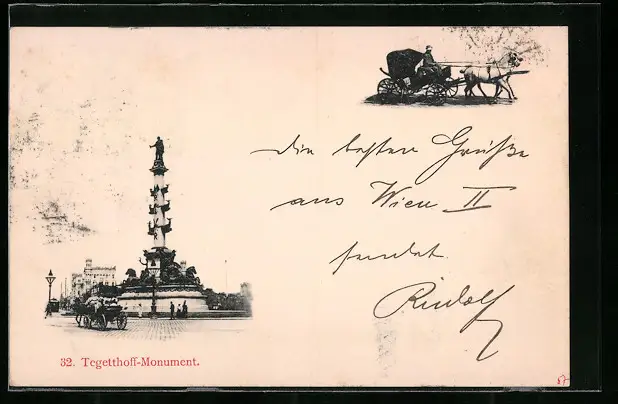 Die besten Grüße
aus Wien II
sendet
Rudolf
32. Tegetthoff-Monument.
57